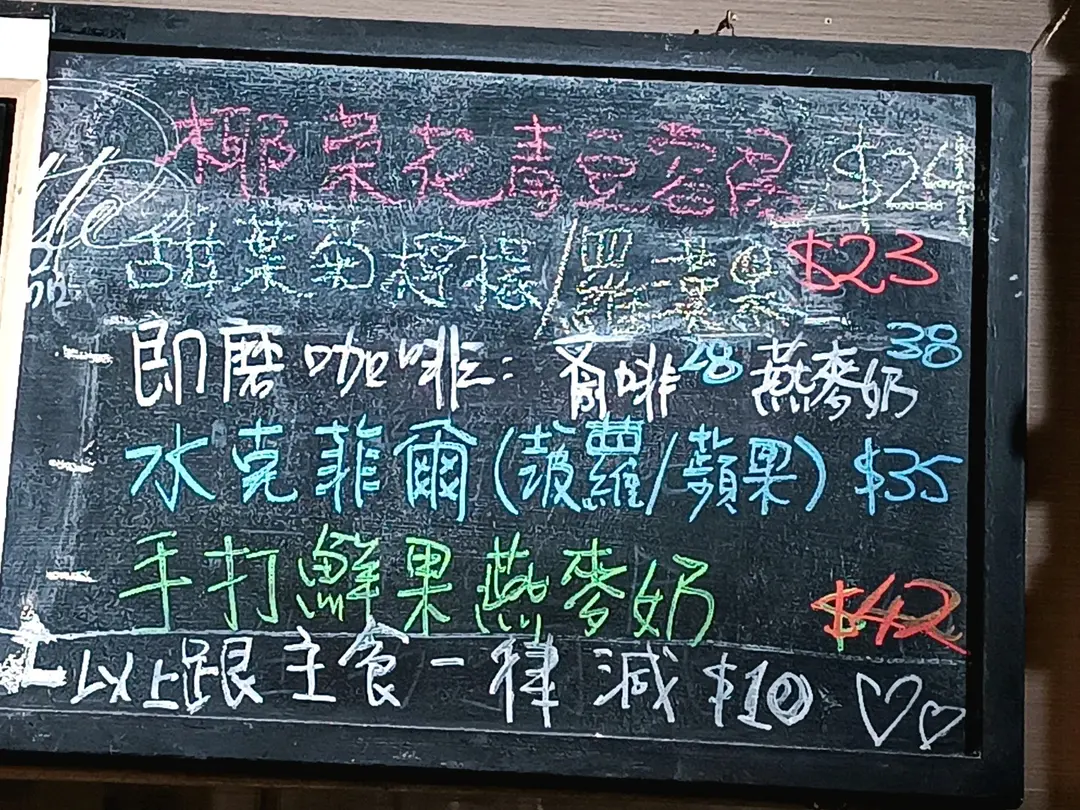 椰果花青豆宏昌 $26
甜葉菊檸檬/羅漢果 $23
即磨咖啡: 齋啡28 燕麥奶38
水克菲爾(菠蘿/蘋果) $35
手打鮮果燕麥奶 $42
以上跟主食一律減 $10